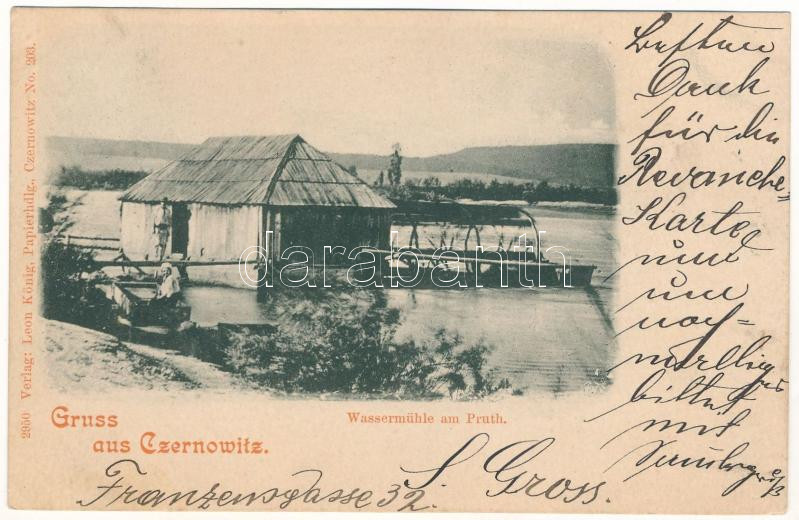 Besten
Dank
für die
Revanche-
Karte
und
um
noch-
mallige
bittet
mit
2950 Verlag: Leon König, Papierhdlg., Czernowitz No. 203.
darabanth
Gruss
aus Czernowitz.
Wassermühle am Pruth.
S. Gross.
Franzensgasse 32.